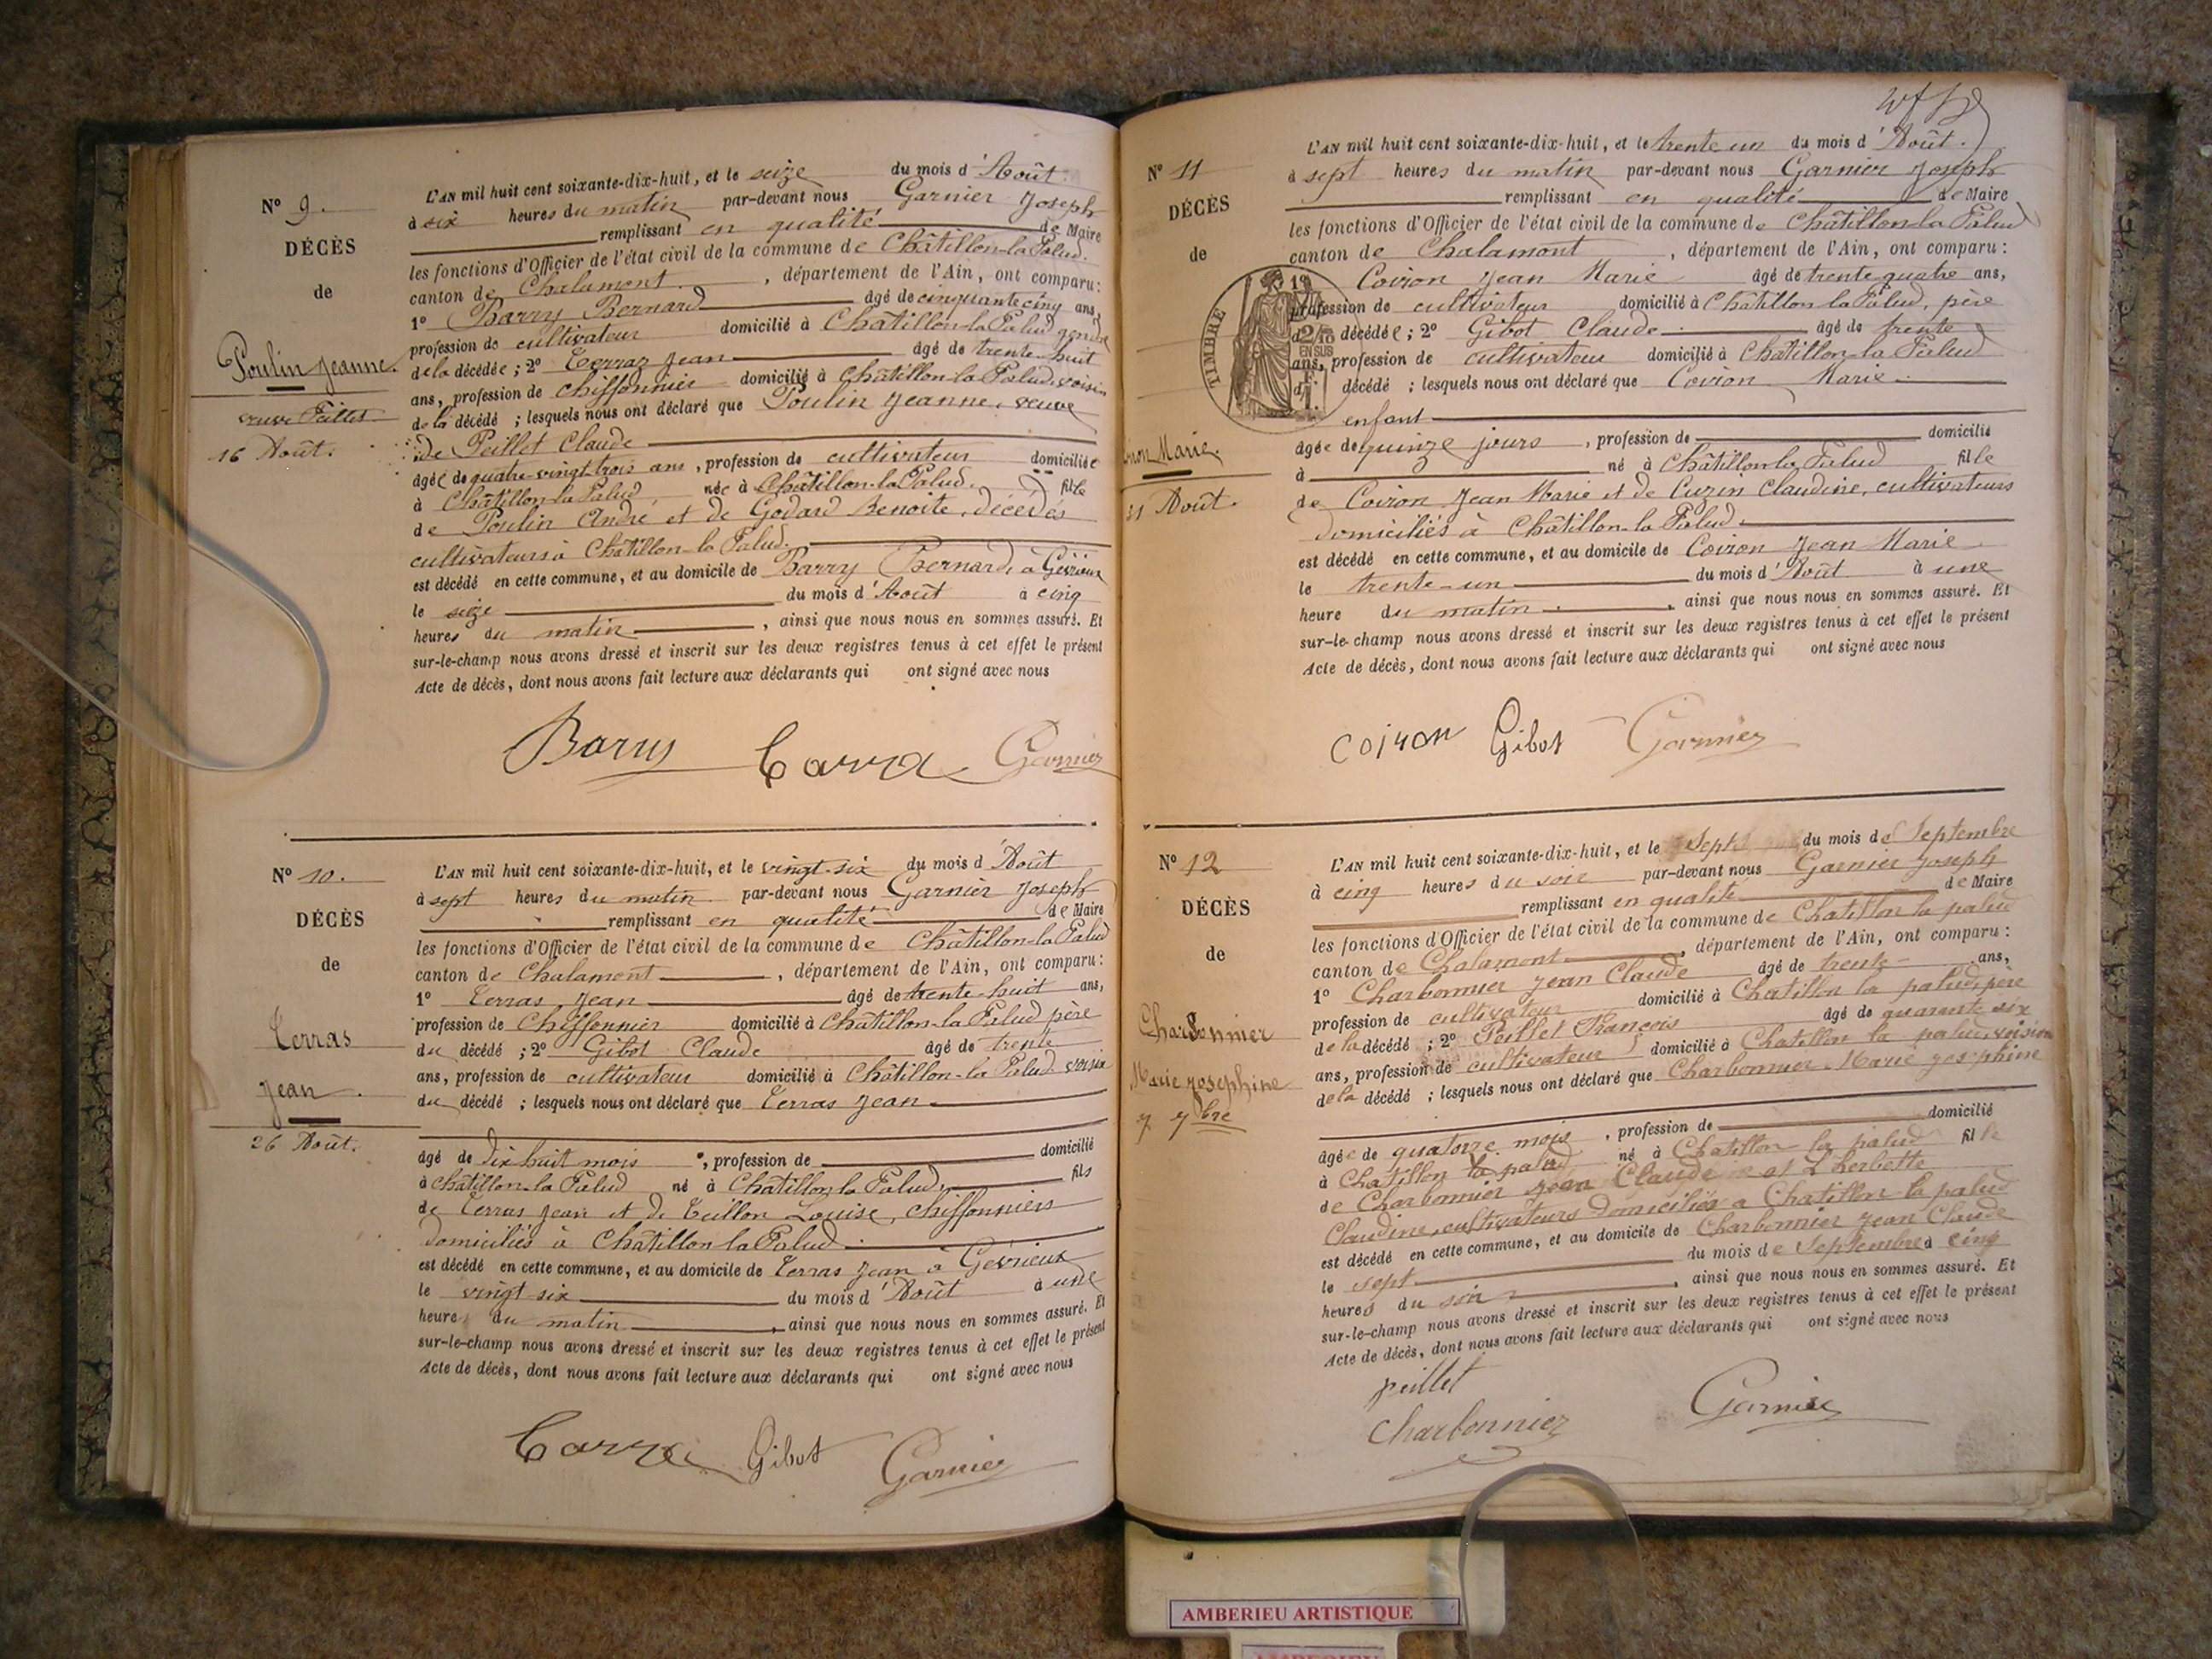 N° 9.
DÉCÈS
de
Poulin Jeanne.
veuve Peillet
16 Août.
L'AN mil huit cent soixante-dix-huit, et le seize du mois d'Août
à six heures du matin par-devant nous Garnier Joseph
remplissant en qualité de Maire
les fonctions d'Officier de l'état civil de la commune de Châtillon-la-Palud.
canton de Chalamont , département de l'Ain, ont comparu:
1° Barry Bernard âgé de cinquante cinq ans,
profession de cultivateur domicilié à Châtillon-la-Palud gendre
de la décédée ; 2° Terraz Jean âgé de trente-huit
ans, profession de chiffonnier domicilié à Châtillon-la-Palud, voisin
de la décédé ; lesquels nous ont déclaré que Poulin Jeanne, veuve
de Peillet Claude
âgée de quatre-vingt trois ans , profession de cultivateur domiciliée
à Châtillon-la-Palud, née à Châtillon-la-Palud. fille
de Poulin André et de Godard Benoite, décédés
cultivateurs à Châtillon-la-Palud.
est décédé en cette commune, et au domicile de Barry Bernard, à Gévrieux
le seize du mois d'Août à cinq
heures du matin , ainsi que nous nous en sommes assuré. Et
sur-le-champ nous avons dressé et inscrit sur les deux registres tenus à cet effet le présent
Acte de décès, dont nous avons fait lecture aux déclarants qui ont signé avec nous
Barry Carra Garnier
N° 10.
DÉCÈS
de
Terras
Jean.
26 Août.
L'AN mil huit cent soixante-dix-huit, et le vingt-six du mois d'Août
à sept heures du matin par-devant nous Garnier Joseph
remplissant en qualité de Maire
les fonctions d'Officier de l'état civil de la commune de Châtillon-la-Palud
canton de Chalamont , département de l'Ain, ont comparu:
1° Terras Jean âgé de trente-huit ans,
profession de Chiffonnier domicilié à Châtillon-la-Palud père
du décédé ; 2° Gibot Claude âgé de trente
ans, profession de cultivateur domicilié à Châtillon-la-Palud voisin
du décédé ; lesquels nous ont déclaré que Terras Jean
âgé de dix huit mois , profession de domicilié
à Châtillon-la-Palud né à Châtillon-la-Palud. fils
de Terras Jean et de Teillon Louise, chiffonniers
domiciliés à Châtillon la Palud
est décédé en cette commune, et au domicile de Terras Jean à Gévrieux
le vingt six du mois d'Août à une
heure du matin , ainsi que nous nous en sommes assuré. Et
sur-le-champ nous avons dressé et inscrit sur les deux registres tenus à cet effet le présent
Acte de décès, dont nous avons fait lecture aux déclarants qui ont signé avec nous
Carra Gibot Garnier
N° 11
DÉCÈS
de
TIMBRE
2/10
EN SUS
Marie.
31 Août.
L'AN mil huit cent soixante-dix-huit, et le trente un du mois d'Août.
à sept heures du matin par-devant nous Garnier Joseph
remplissant en qualité de Maire
les fonctions d'Officier de l'état civil de la commune de Châtillon-la-Palud
canton de Chalamont , département de l'Ain, ont comparu:
Coiron Jean Marie âgé de trente quatre ans,
profession de cultivateur domicilié à Châtillon-la-Palud, père
décédée ; 2° Gibot Claude âgé de trente
ans, profession de cultivateur domicilié à Châtillon-la-Palud
décédé ; lesquels nous ont déclaré que Coiron Marie
enfant
âgée de quinze jours , profession de domicilié
à né à Châtillon-la-Palud fille
de Coiron Jean Marie et de Cuzin Claudine, cultivateurs
domiciliés à Châtillon-la Palud.
est décédé en cette commune, et au domicile de Coiron Jean Marie
le trente-un du mois d'Août à une
heure du matin , ainsi que nous nous en sommes assuré. Et
sur-le-champ nous avons dressé et inscrit sur les deux registres tenus à cet effet le présent
Acte de décès, dont nous avons fait lecture aux déclarants qui ont signé avec nous
Coiron Gibot Garnier
N° 12
DÉCÈS
de
Charbonnier
Marie Josephine
7 7bre
L'AN mil huit cent soixante-dix-huit, et le Sept du mois de Septembre
à cinq heures du soir par-devant nous Garnier Joseph
remplissant en qualité de Maire
les fonctions d'Officier de l'état civil de la commune de Chatillon la palud
canton de Chalamont , département de l'Ain, ont comparu:
1° Charbonnier Jean Claude âgé de trente ans,
profession de cultivateur domicilié à Chatillon la palud, père
de la décédé ; 2° Peillet François âgé de quarante six
ans, profession de cultivateur domicilié à Chatillon la palud, voisin
de la décédé ; lesquels nous ont déclaré que Charbonnier Marie Josephine
âgée de quatorze mois , profession de domicilié
à Chatillon la palud né à Chatillon la palud fille
de Charbonnier Jean Claude et Lherbette
Claudine, cultivateurs domiciliés à Chatillon la palud
est décédé en cette commune, et au domicile de Charbonnier Jean Claude
le sept du mois de Septembre à cinq
heures du soir , ainsi que nous nous en sommes assuré. Et
sur-le-champ nous avons dressé et inscrit sur les deux registres tenus à cet effet le présent
Acte de décès, dont nous avons fait lecture aux déclarants qui ont signé avec nous
peillet
Charbonnier Garnier
AMBERIEU ARTISTIQUE